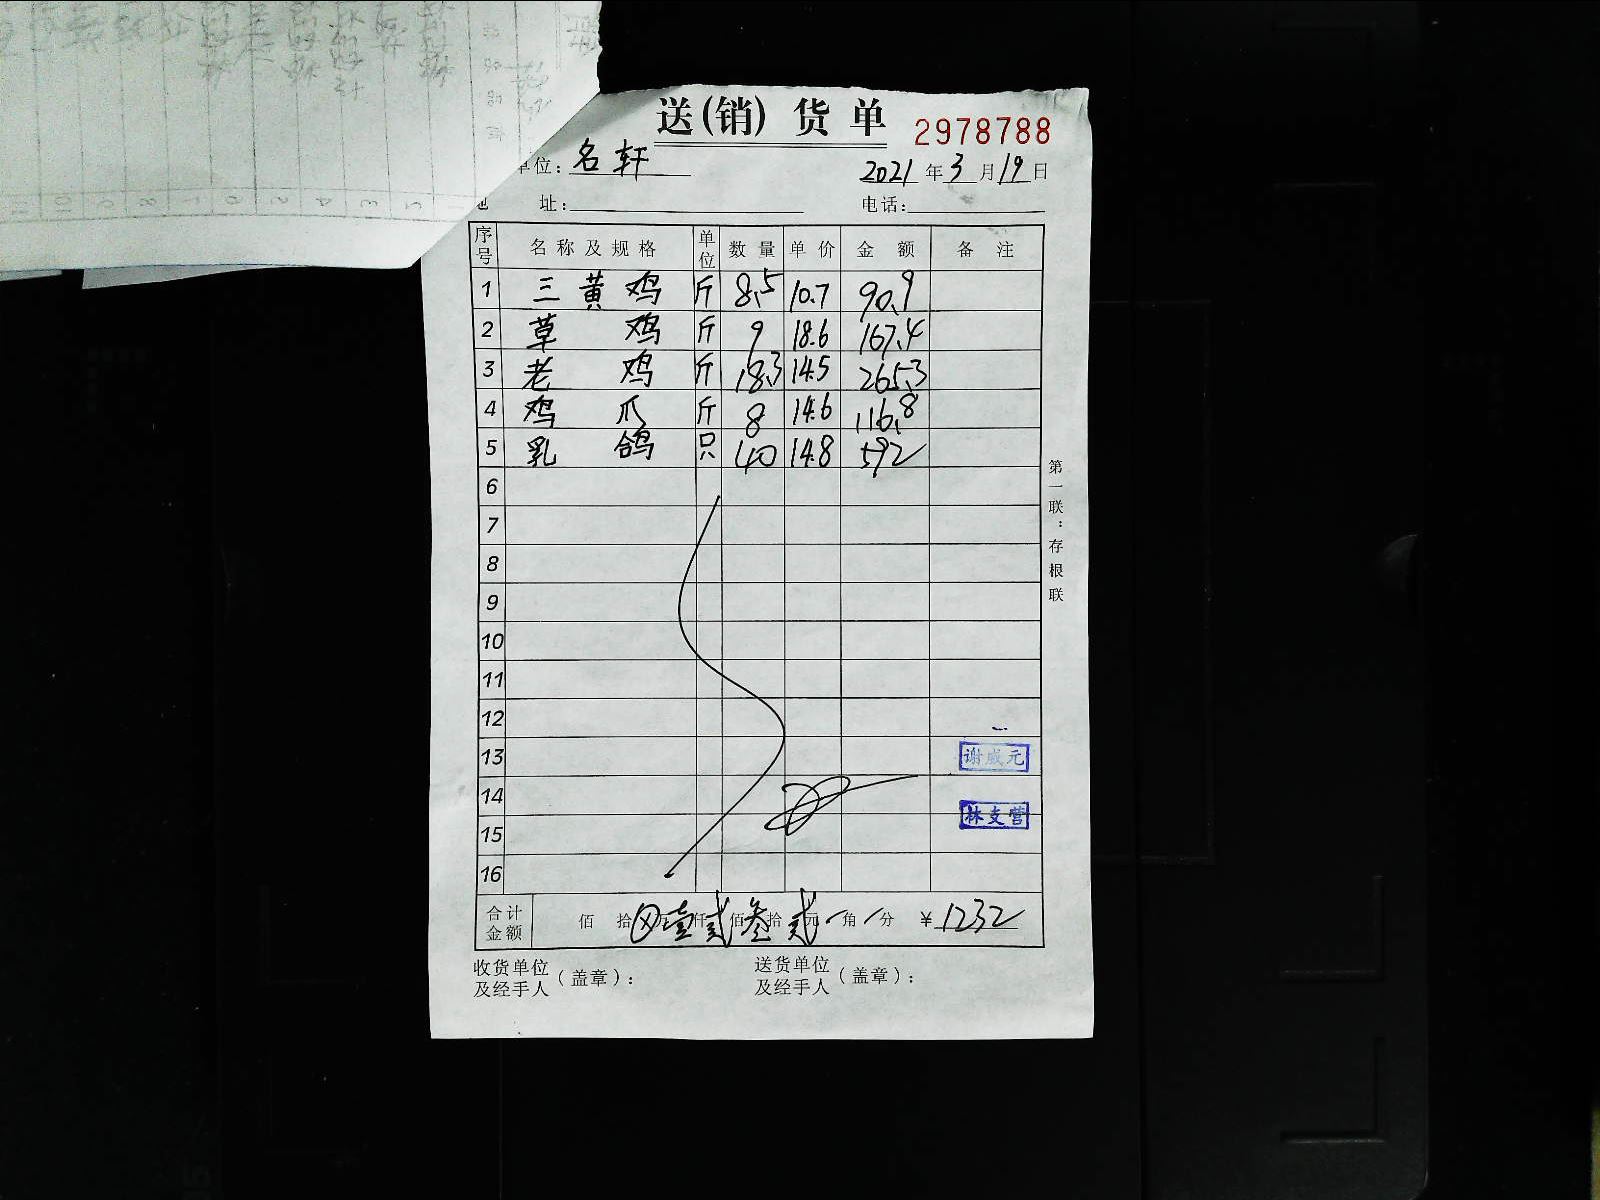 送(销)货单 2978788
单位：名轩 2021年3月19日
址： 电话：
序号 名称及规格 单位 数量 单价 金额 备注
1 三黄鸡 斤 8.5 10.7 90.9
2 草鸡 斤 9 18.6 167.4
3 老鸡 斤 18.3 14.5 265.3
4 鸡爪 斤 8 14.6 116.8
5 乳鸽 只 40 14.8 592
6
7
8
9
10
11
12
13 谢成元
14
15 林支营
16
合计金额 佰拾万壹仟贰佰叁拾贰元/角/分 ¥1232
收货单位及经手人（盖章）： 送货单位及经手人（盖章）：
第一联：存根联